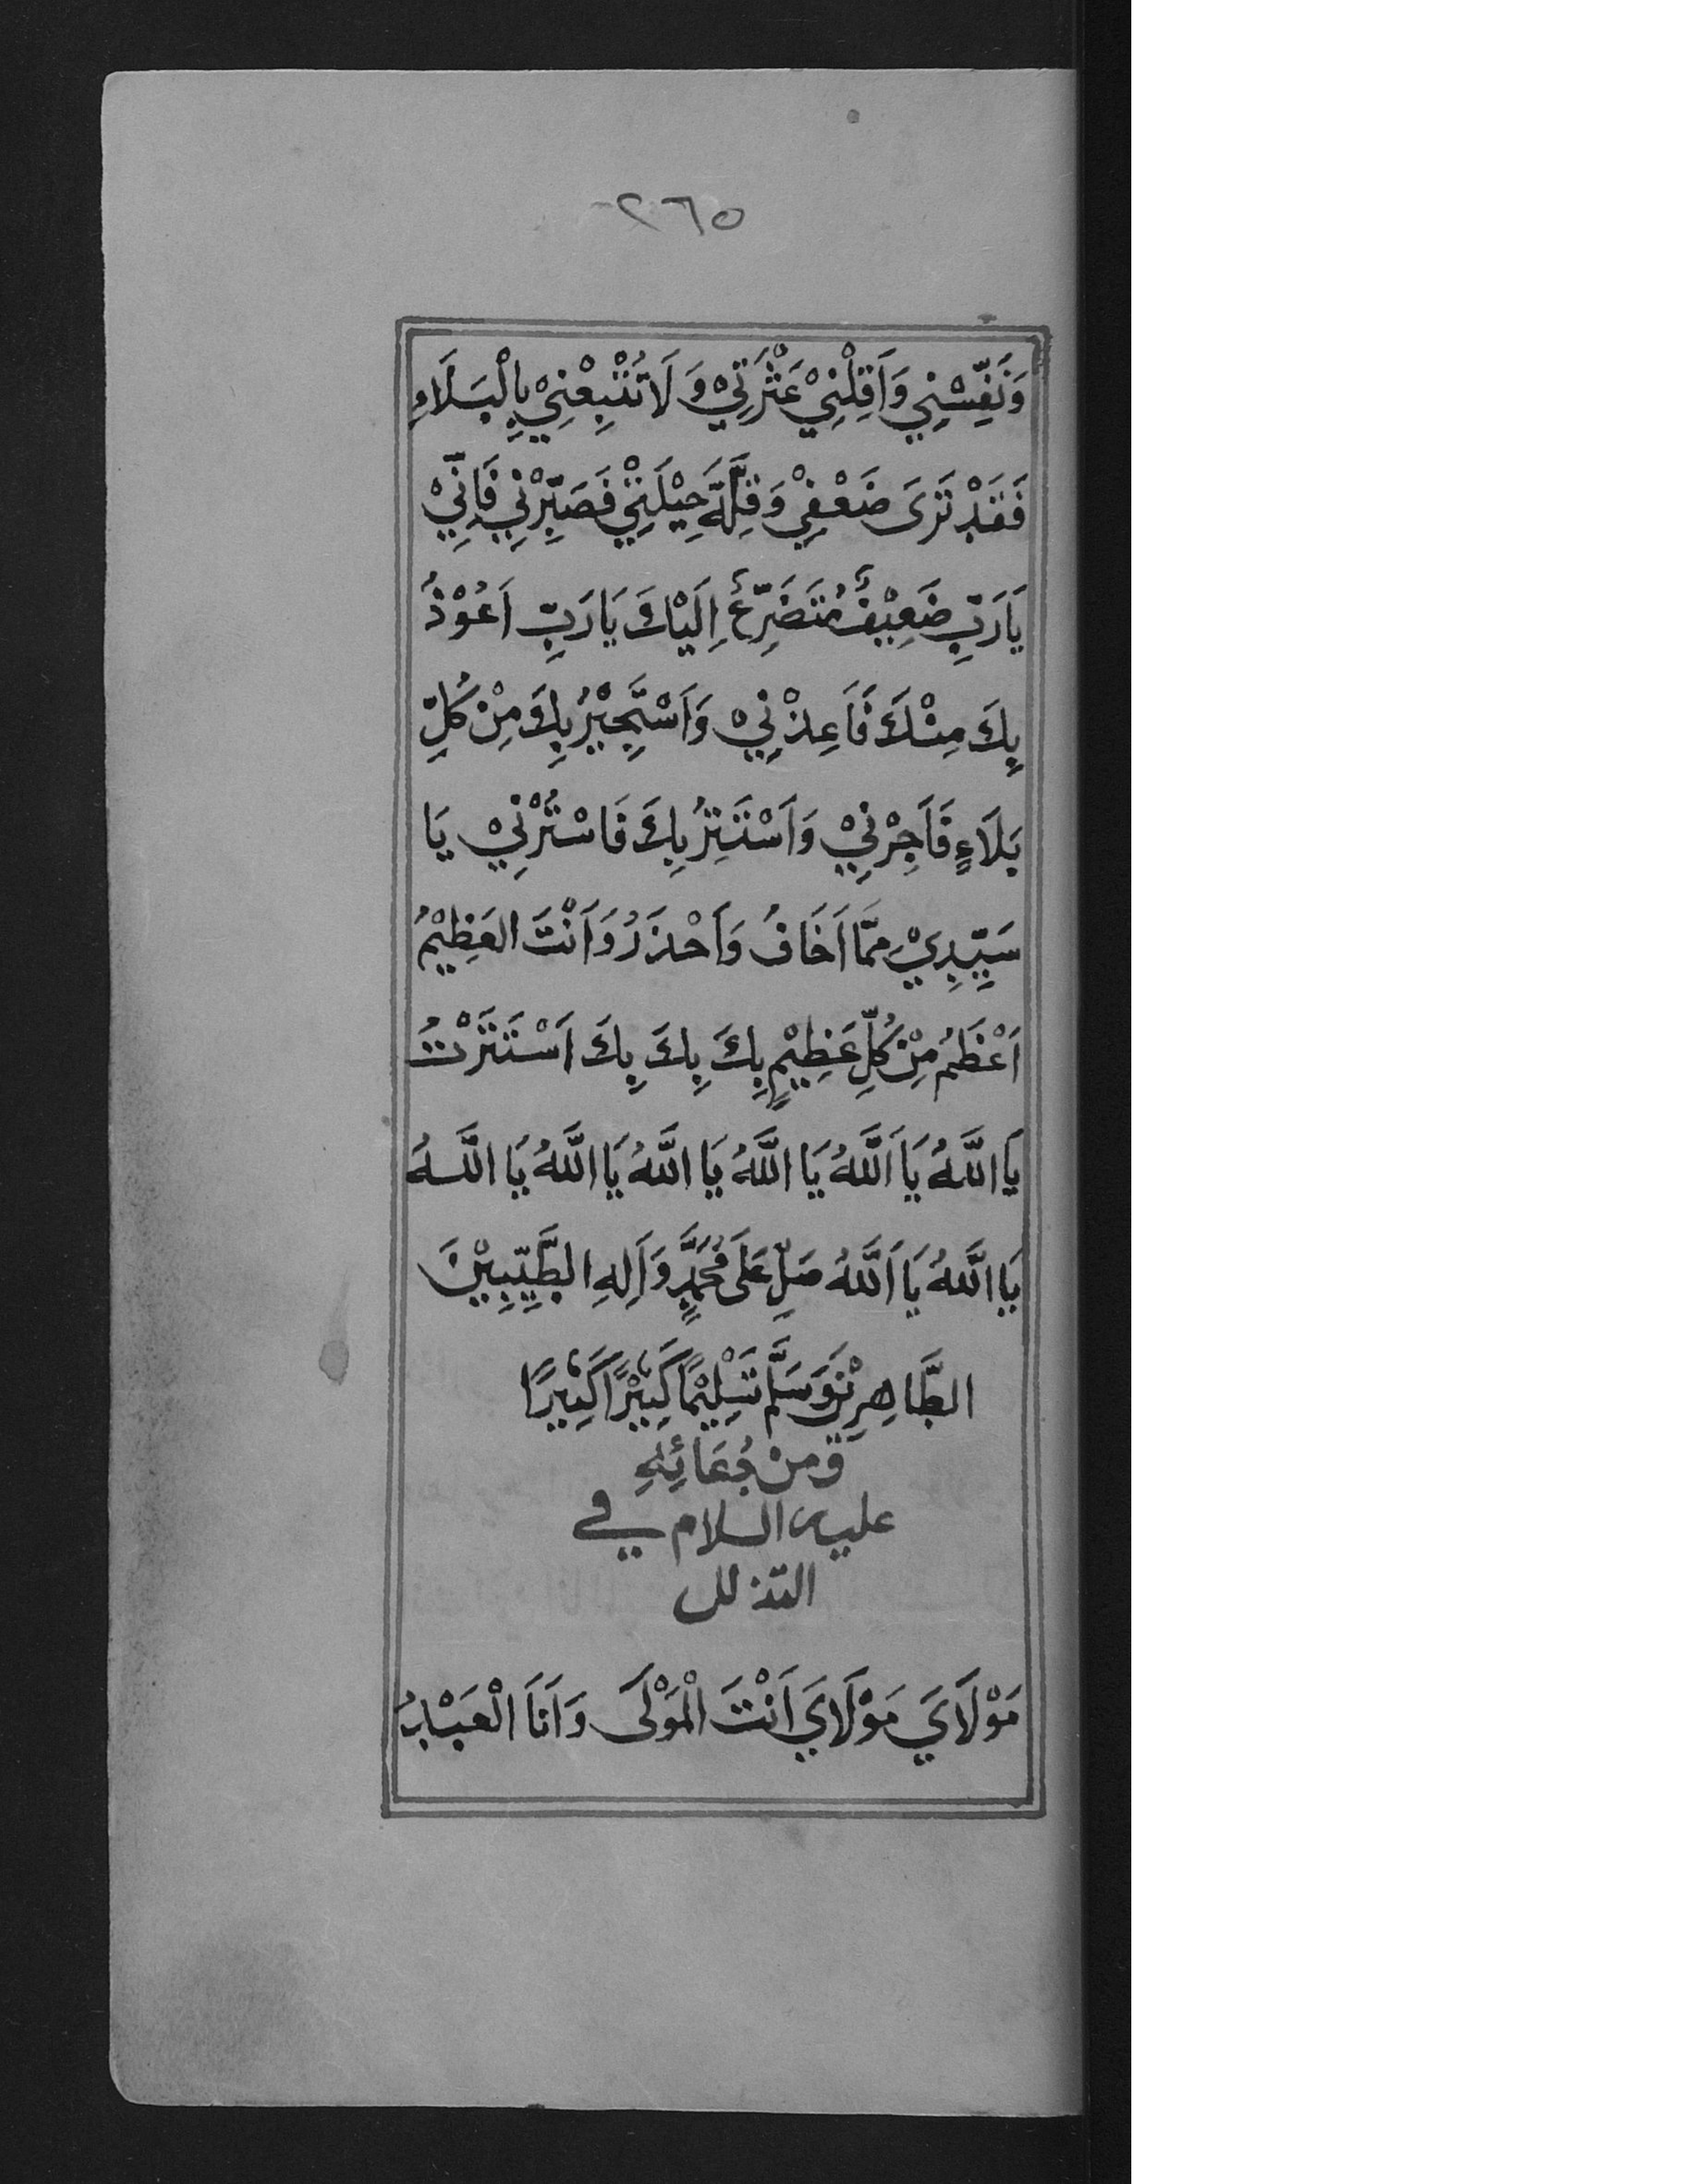 ٢٦٥
وَنَفِّسْنِي وَاَقِلْنِيْ عَثْرَتِيْ وَ لَا تُتْبِعْنِيْ بِالْبَلَاءِ
فَقَدْ تَرَىَ ضَعْفِيْ وَقِلَّةَ حِيْلَتِيْ فَصَبِّرْنِي فَاِنِّيْ
يَارَبِّ ضَعِيْفٌ مُتَضَرِّعٌ اِلَيْكَ يَارَبِّ اَعُوْذُ
بِكَ مِنْكَ فَاَعِذْنِيْ وَاَسْتَجِيْرُ بِكَ مِنْ كُلِّ
بَلَاءٍ فَاَجِرْنِيْ وَاَسْتَتِرُ بِكَ فَاسْتُرْنِيْ يَا
سَيِّدِيْ مِمَّا اَخَافُ وَاَحْذَرُ وَاَنْتَ العَظِيْمُ
اَعْظَمُ مِنْ كُلِّ عَظِيْمٍ بِكَ بِكَ بِكَ اَسْتَتَرْتُ
يَا اللَّهُ يَا اَللَّهُ يَا اللَّهُ يَا اللَّهُ يَا اللَّهُ يَا اللَّهُ
يَا اللَّهُ يَا اَللَّهُ صَلِّ عَلَى مُحَمَّدٍ وَاَلِهِ الطَّيِّبِيْنَ
الطَّاهِرِيْنَ وَسَلَّمَ تَسْلِيْمًا كَثِيْرًا كَثِيْرًا
وَ مِنْ دُعَائِهِ
عليه السلام في
التذلل
مَوْلَايَ مَوْلَايَ اَنْتَ الْمَوْلَى وَاَنَا الْعَبْدُ